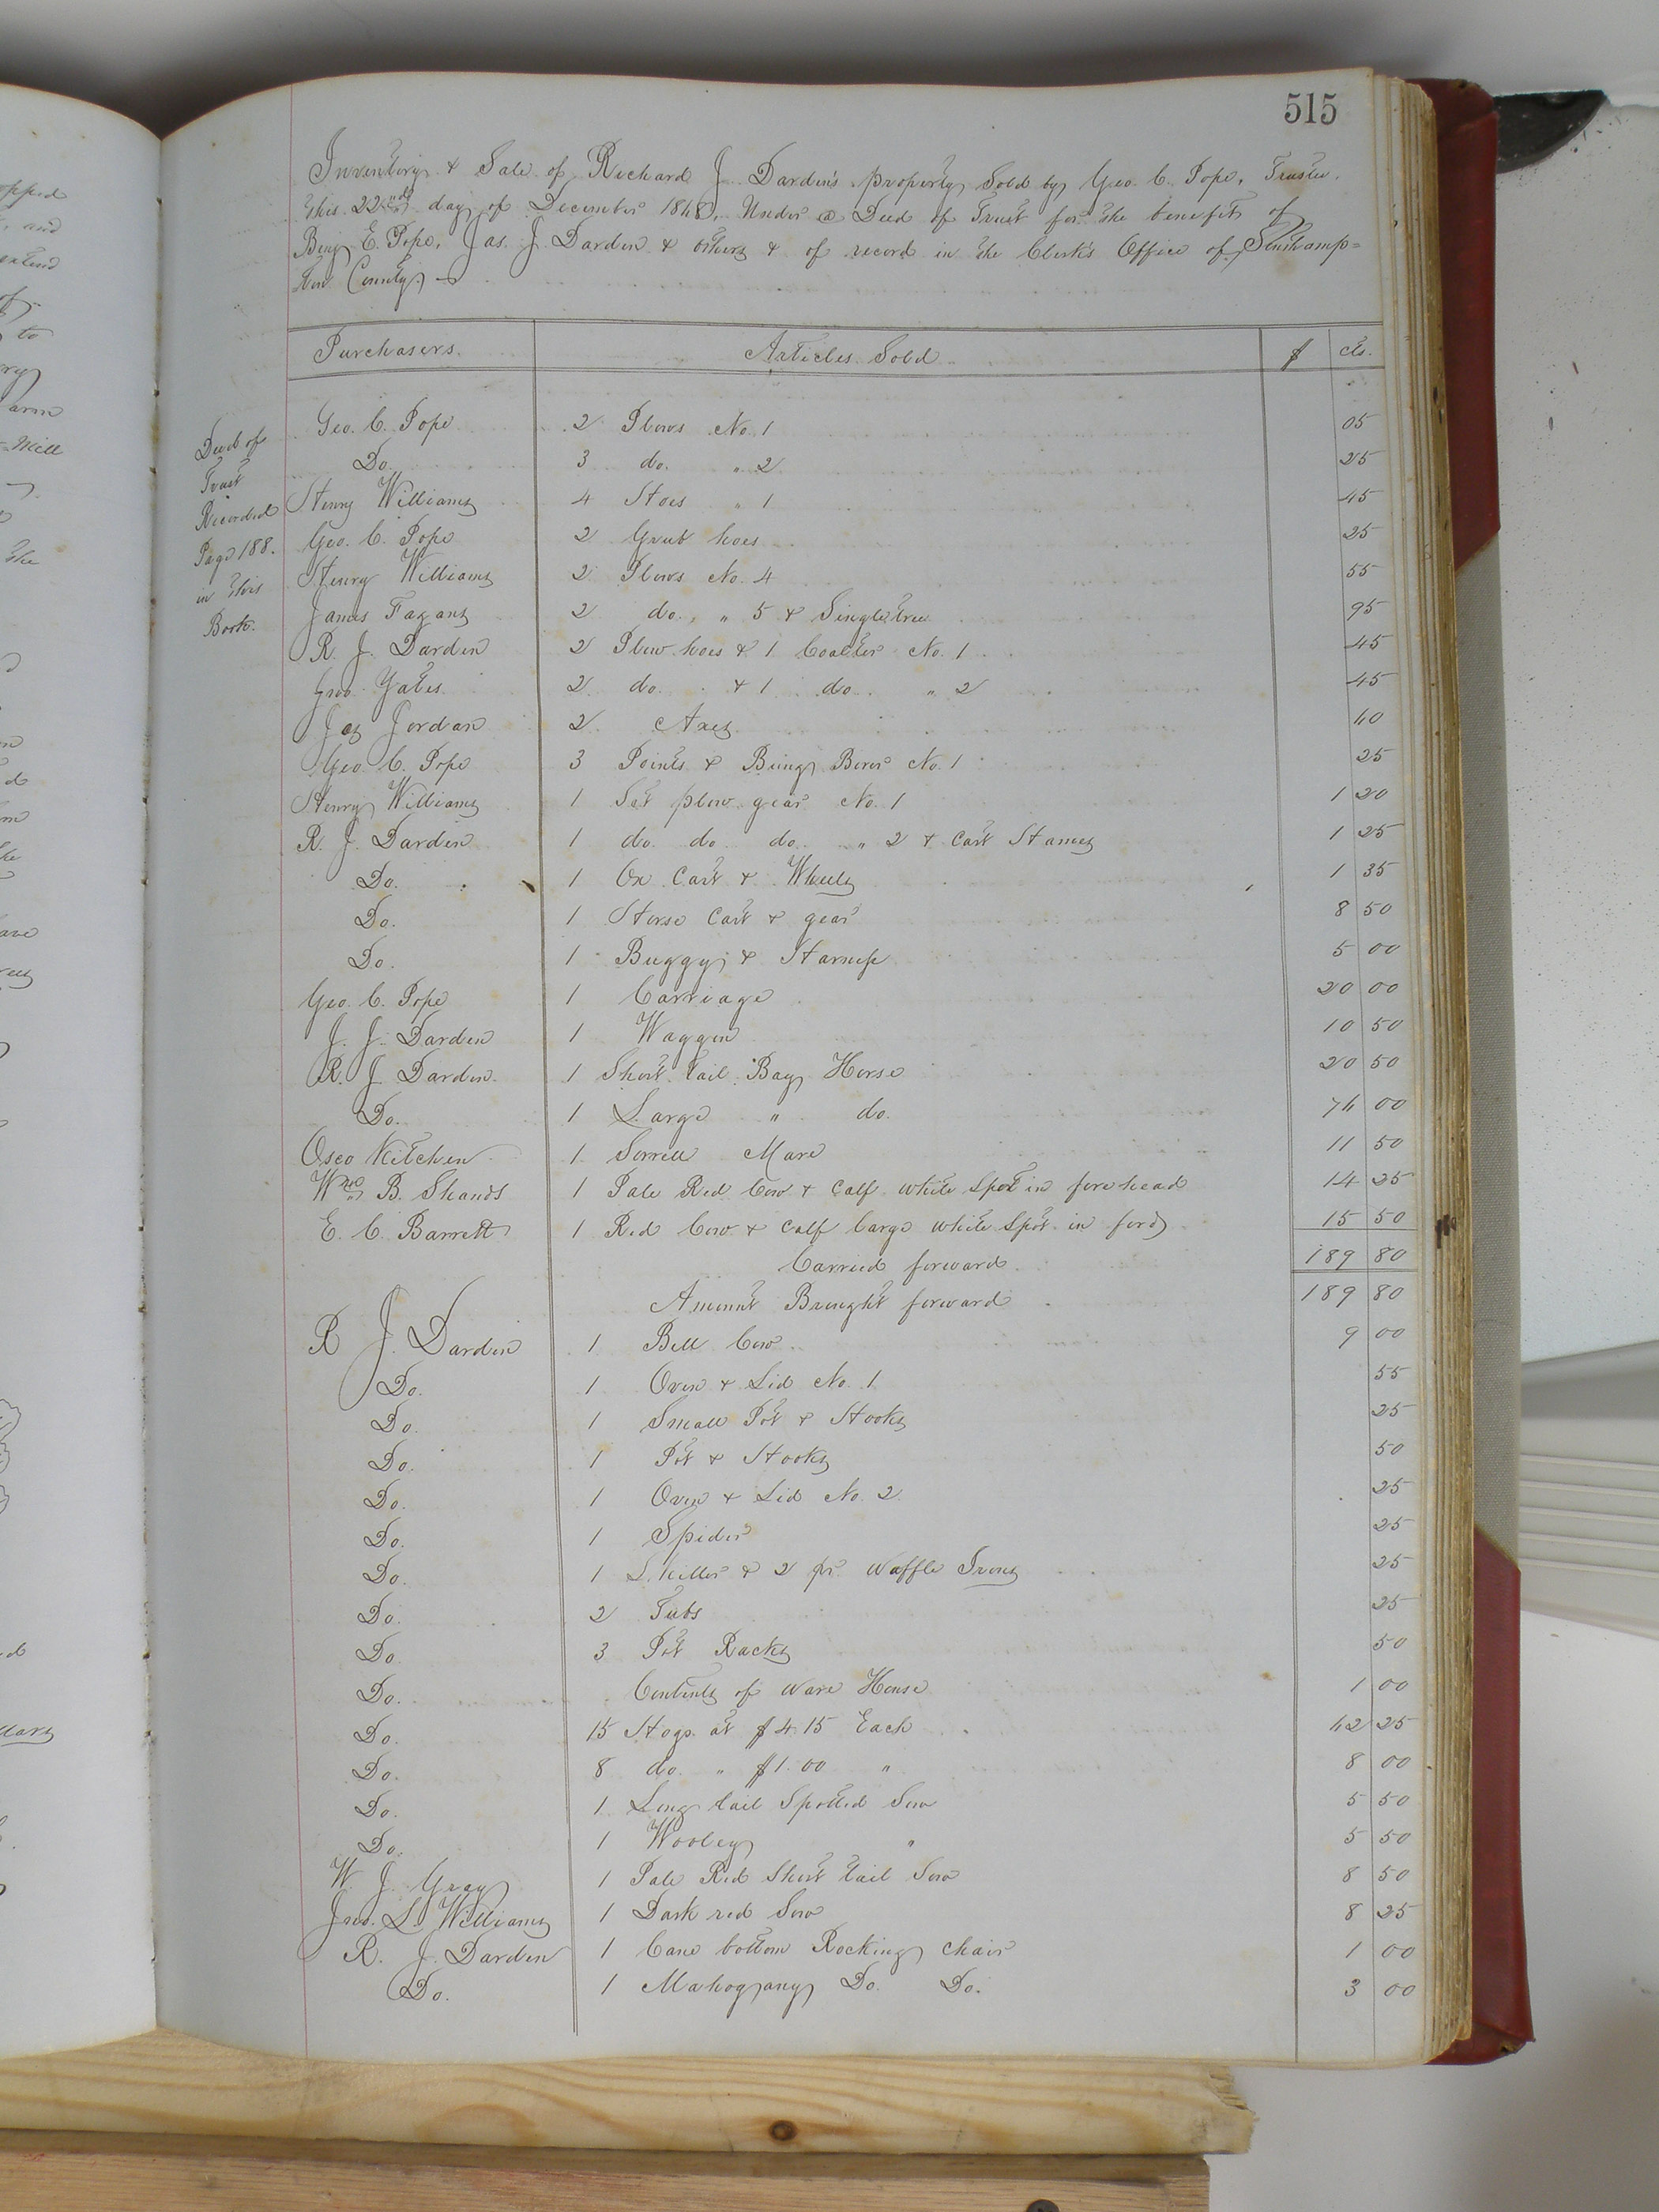 515
Inventory & Sale of Richard J. Darden's property Sold by Geo. C. Pope, Trustee.
this 22nd day of December 1848, Under a Deed of Trust for the benefit of
Benj E. Pope, Jas. J. Darden & others & of record in the Clerk's Office of Southamp=
ton County
Purchasers. Articles Sold $ cts.
Deed of
Trust
Recorded
Page 188.
in this
Book.
Geo. C. Pope 2 Plows No. 1 05
Do. 3 do. " 2 25
Henry Williams 4 Hoes " 1 45
Geo. C. Pope 2 Grub hoes 25
Henry Williams 2 Plows No. 4 55
James Fagans 2 do. " 5 & Singletree 95
R. J. Darden 2 Plow hoes & 1 Coalter No. 1 45
Yates 2 do. & 1 do. " 2 45
Jas Jordan 2 Axes 40
Geo. C. Pope 3 Points & No. 1 25
Henry Williams 1 Set plow gear No. 1 1 20
R. J. Darden 1 do. do. do. " 2 & Cart Hames 1 25
Do. 1 Ox Cart & Wheels 1 35
Do. 1 Horse Cart & gear 8 50
Do. 1 Buggy & Harness 5 00
Geo. C. Pope 1 Carriage 20 00
J. J. Darden 1 Waggon 10 50
R. J. Darden. 1 Short tail Bay Horse 20 50
Do. 1 Large " do. 74 00
Oseo Kitchen 1 Sorrell Mare 11 50
Wm B. Shands 1 Pale Red Cow & Calf white Spot in forehead 14 25
E. C. Barrett 1 Red Cow & Calf large white Spot in ford 15 50
Carried forward 189 80
Amount Brought forward 189 80
R J. Darden 1 Bell Cow 9 00
Do. 1 Oven & Lid No. 1 55
Do. 1 Small Pot & Hooks 25
Do. 1 Pot & Hooks 50
Do. 1 Oven & Lid No. 2 25
Do. 1 Spider 25
Do. 1 & 2 pr. Waffle Irons 25
Do. 2 Tubs 25
Do. 3 Pot Racks 50
Do. Contents of Ware House 1 00
Do. 15 Hogs at $4.15 Each 62 25
Do. 8 do. " $1.00 " 8 00
Do. 1 Long tail Spotted Sow 5 50
Do. 1 Wooley " 5 50
W. J. Gray 1 Pale Red Short tail Sow 8 50
Jno. L. Williams 1 Dark red Sow 8 25
R. J. Darden 1 Cane bottom Rocking Chair 1 00
Do. 1 Mahogany Do. Do. 3 00